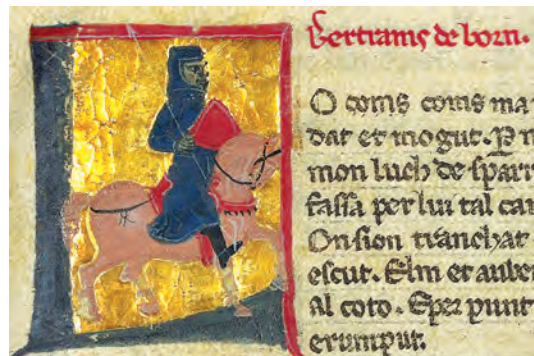 Bertrams de born.
O coms coms ma
dat et mogut. P n
mon luch de sparr
fassa per lui tal can
On sion tranchat
escut. Elm et auber
al coto. Espz punt
erumput.